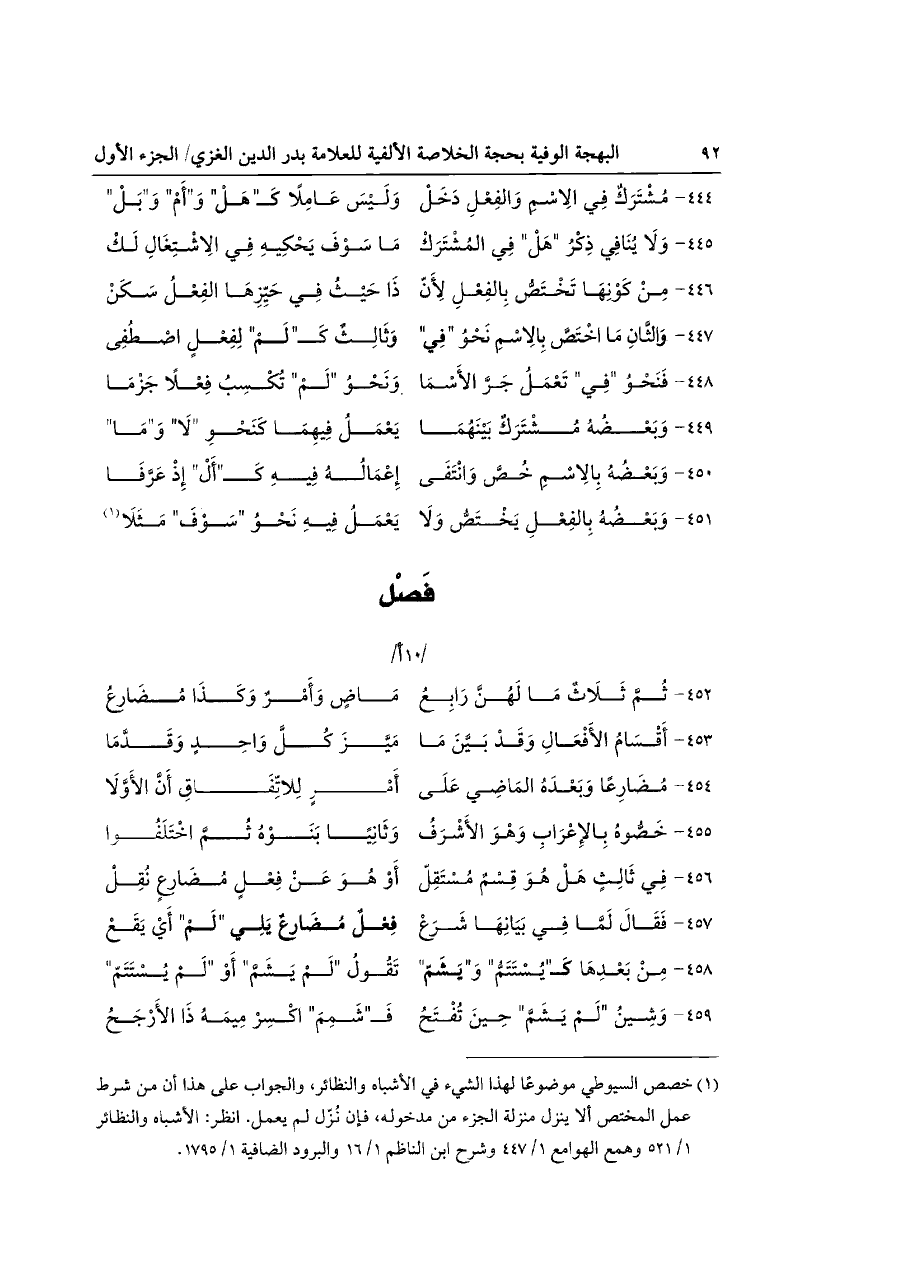 ٩٢ البهجة الوفية بحجة الخلاصة الألفية للعلامة بدر الدين الغزي/ الجزء الأول
٤٤٤- مُشْتَرَكٌ فِي الِاسْمِ وَالفِعْلِ دَخَلْ وَلَيْسَ عَامِلًا كَـ"هَلْ" وَ"أَمْ" وَ"بَلْ"
٤٤٥- وَلَا يُنَافِي ذِكْرُ "هَلْ" فِي المُشْتَرَكْ مَا سَوْفَ يَحْكِيهِ فِي الِاشْتِغَالِ لَكْ
٤٤٦- مِنْ كَوْنِهَا تَخْتَصُّ بِالفِعْلِ لِأَنْ ذَا حَيْثُ فِي حَيِّزِهَا الفِعْلُ سَكَنْ
٤٤٧- وَالثَّانِ مَا اخْتَصَّ بِالِاسْمِ نَحْوُ "فِي" وَثَالِثٌ كَـ"لَمْ" لِفِعْلٍ اصْطُفِى
٤٤٨- فَنَحْوُ "فِي" تَعْمَلُ جَرَّ الأَسْمَا وَنَحْوُ "لَمْ" تُكْسِبُ فِعْلًا جَزْمَا
٤٤٩- وَبَعْضُهُ مُشْتَرَكٌ بَيْنَهُمَا يَعْمَلُ فِيهِمَا كَنَحْوِ "لَا" وَ"مَا"
٤٥٠- وَبَعْضُهُ بِالِاسْمِ خُصَّ وَانْتَفَى إِعْمَالُهُ فِيهِ كَـ"أَلْ" إِذْ عَرَّفَا
٤٥١- وَبَعْضُهُ بِالفِعْلِ يَخْتَصُّ وَلَا يَعْمَلُ فِيهِ نَحْوُ "سَوْفَ" مَثَلَا(١)
فَصْل
/١٠أ/
٤٥٢- ثُمَّ ثَلَاثٌ مَا لَهُنَّ رَابِعُ مَاضٍ وَأَمْرٌ وَكَذَا مُضَارِعُ
٤٥٣- أَقْسَامُ الأَفْعَالِ وَقَدْ بَيَّنَ مَا مَيَّزَ كُلَّ وَاحِدٍ وَقَدَّمَا
٤٥٤- مُضَارِعًا وَبَعْدَهُ المَاضِي عَلَى أَمْرٍ لِلِاتِّفَاقِ أَنَّ الأَوَّلَا
٤٥٥- خَصُّوهُ بِالإِعْرَابِ وَهْوَ الأَشْرَفُ وَثَانِيًا بَنَوْهُ ثُمَّ اخْتَلَفُوا
٤٥٦- فِي ثَالِثٍ هَلْ هُوَ قِسْمٌ مُسْتَقِلّْ أَوْ هُوَ عَنْ فِعْلٍ مُضَارِعٍ نُقِلْ
٤٥٧- فَقَالَ لَمَّا فِي بَيَانِهَا شَرَعْ فِعْلٌ مُضَارِعٌ يَلِي "لَمْ" أَيْ يَقَعْ
٤٥٨- مِنْ بَعْدِهَا كَـ"يُسْتَتَمُّ" وَ"يَشَمّْ" تَقُولُ "لَمْ يَشَمَّ" أَوْ "لَمْ يُسْتَتَمّْ"
٤٥٩- وَشِينُ "لَمْ يَشَمَّ" حِينَ تُفْتَحُ فَـ"شَمِمَ" اكْسِرْ مِيمَهُ ذَا الأَرْجَحُ
(١) خصص السيوطي موضوعًا لهذا الشيء في الأشباه والنظائر، والجواب على هذا أن من شرط
عمل المختص ألا ينزل منزلة الجزء من مدخوله، فإن نُزّل لم يعمل. انظر: الأشباه والنظائر
١/ ٥٢١ وهمع الهوامع ١/ ٤٤٧ وشرح ابن الناظم ١/ ١٦ والبرود الضافية ١/ ١٧٩٥.